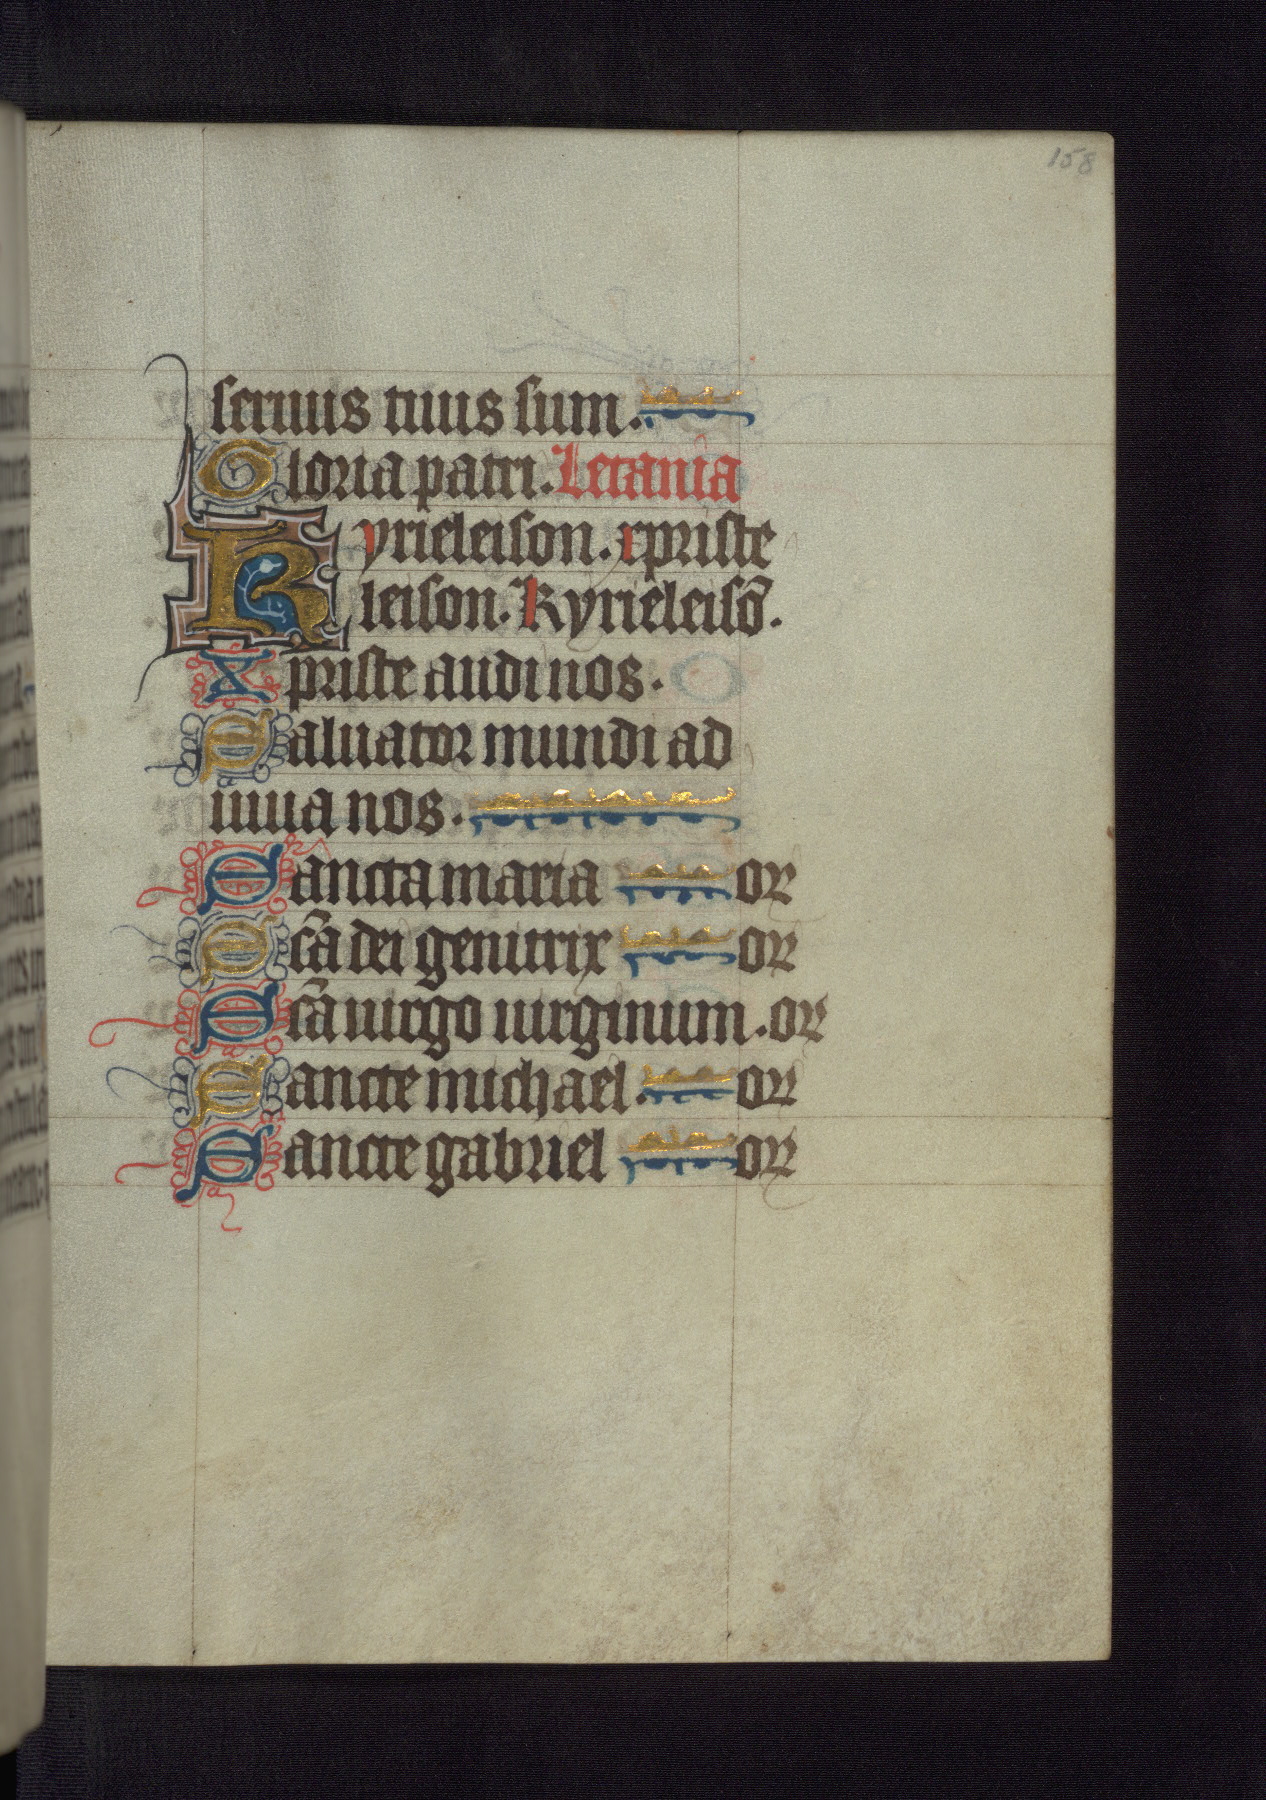 158
seruus tuus sum.
Gloria patri. Letania
Kyrieleison. xpriste
leison. Kyrieleisō.
Xpriste audi nos.
Saluator mundi ad
iuua nos.
Sancta maria or
Scā dei genitrix or
Scā uirgo uirginum. or
Sancte michael. or
Sancte gabriel or